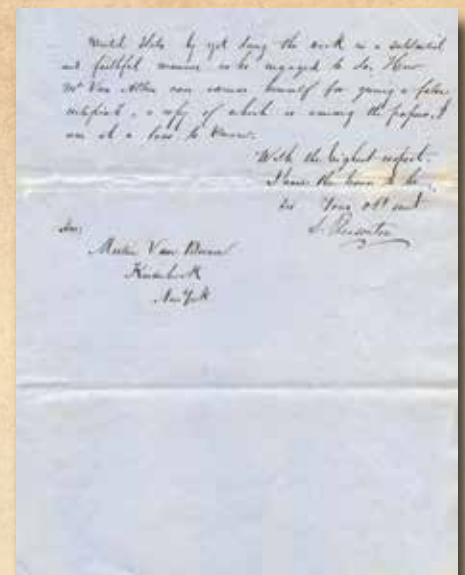 United States by not doing the work in a substantial
and faithful manner as he engaged to do. How
Mr Van can excuse himself for giving a false
certificate, a copy of which is among the papers, I
am at a loss to know.
With the highest respect.
I have the honor to be
Your obt svt
Hon:
Martin Van Buren
Kinderhook
New York